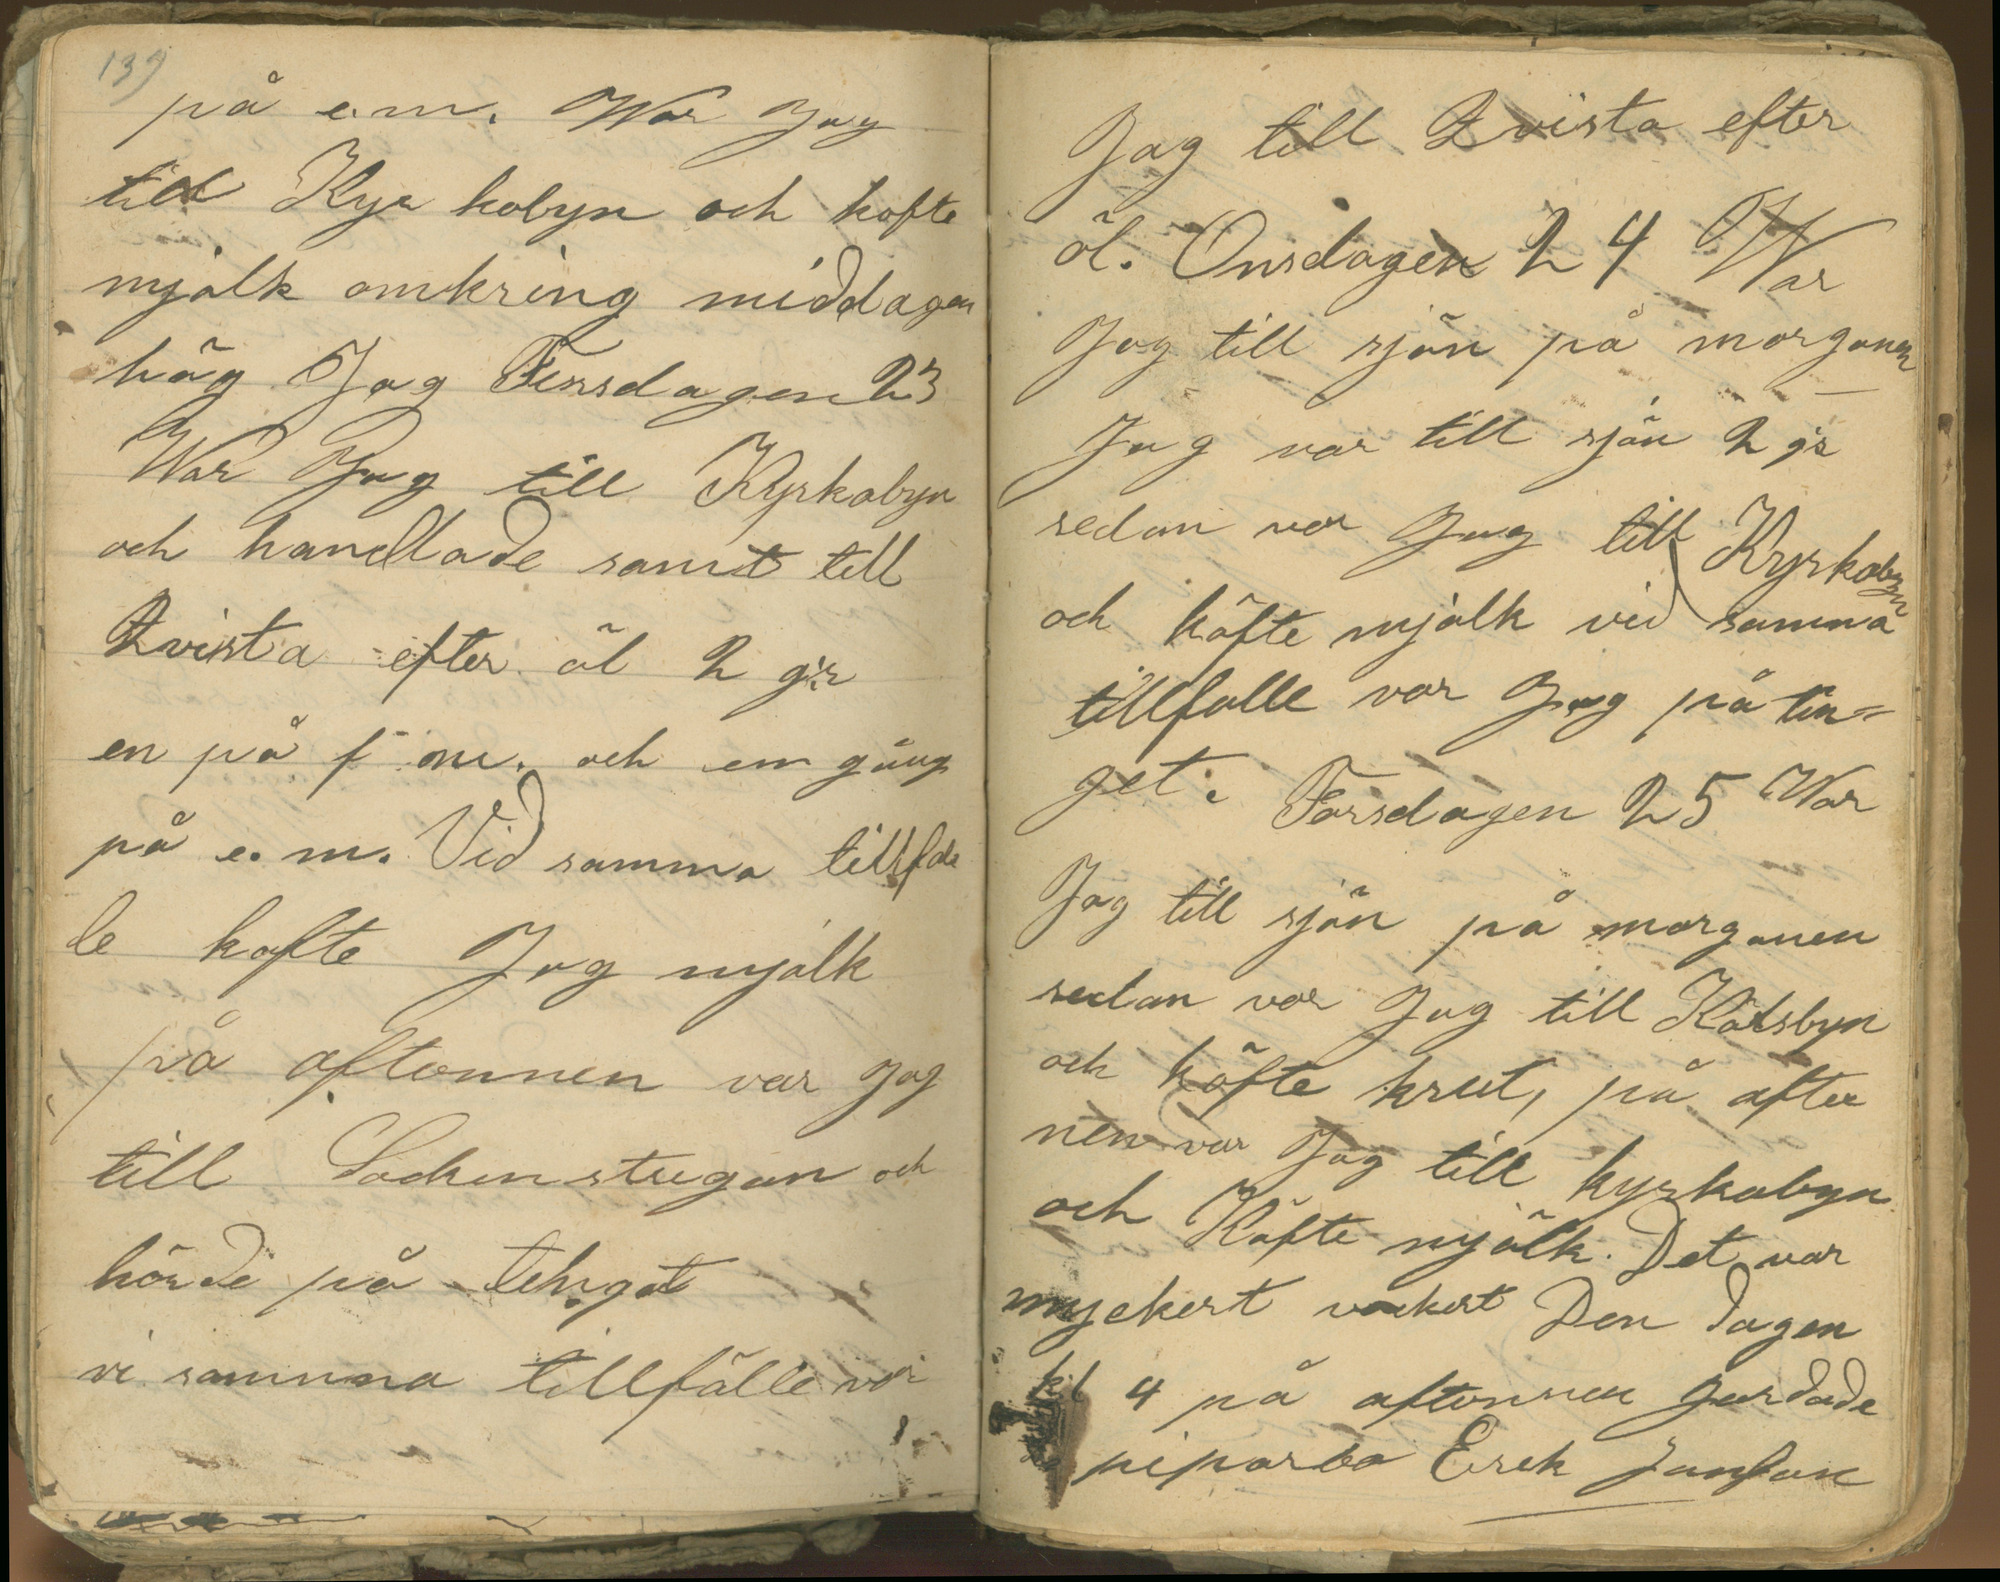 139
på e.m. War Jag
till Kyr kobyn och kofte
mjölk omkring middagen
hög Jag Tirsdagen 23
War Jag till Kyrkobyn
och handlade samt till
Qvista efter öl 2 gr
en på f m. och em gång
på e. m. Vid samma tillfäl
le kofte Jag mjölk
på aftonnen var Jag
till Sockenstugan och
hörde på tehgat
vi samma tillfälle var
Jag till Qvista efter
öl. Onsdagen 24 War
Jag till sjön på morgonen
Jag var till sjön 2 gr
sedan var Jag till Kyrkobyn
och köfte mjölk vid samma
tillfalle var Jag på tin=
get. Torsdagen 25 War
Jag till sjön på morgonen
sedan var Jag till Kålsbyn
och köfte krut, på afto
nen var Jag till kyrkobyn
och Köfte mjölk. Det var
myckert vackert Den dagen
kl 4 på aftonnen gardade
piparbo Erek Janson